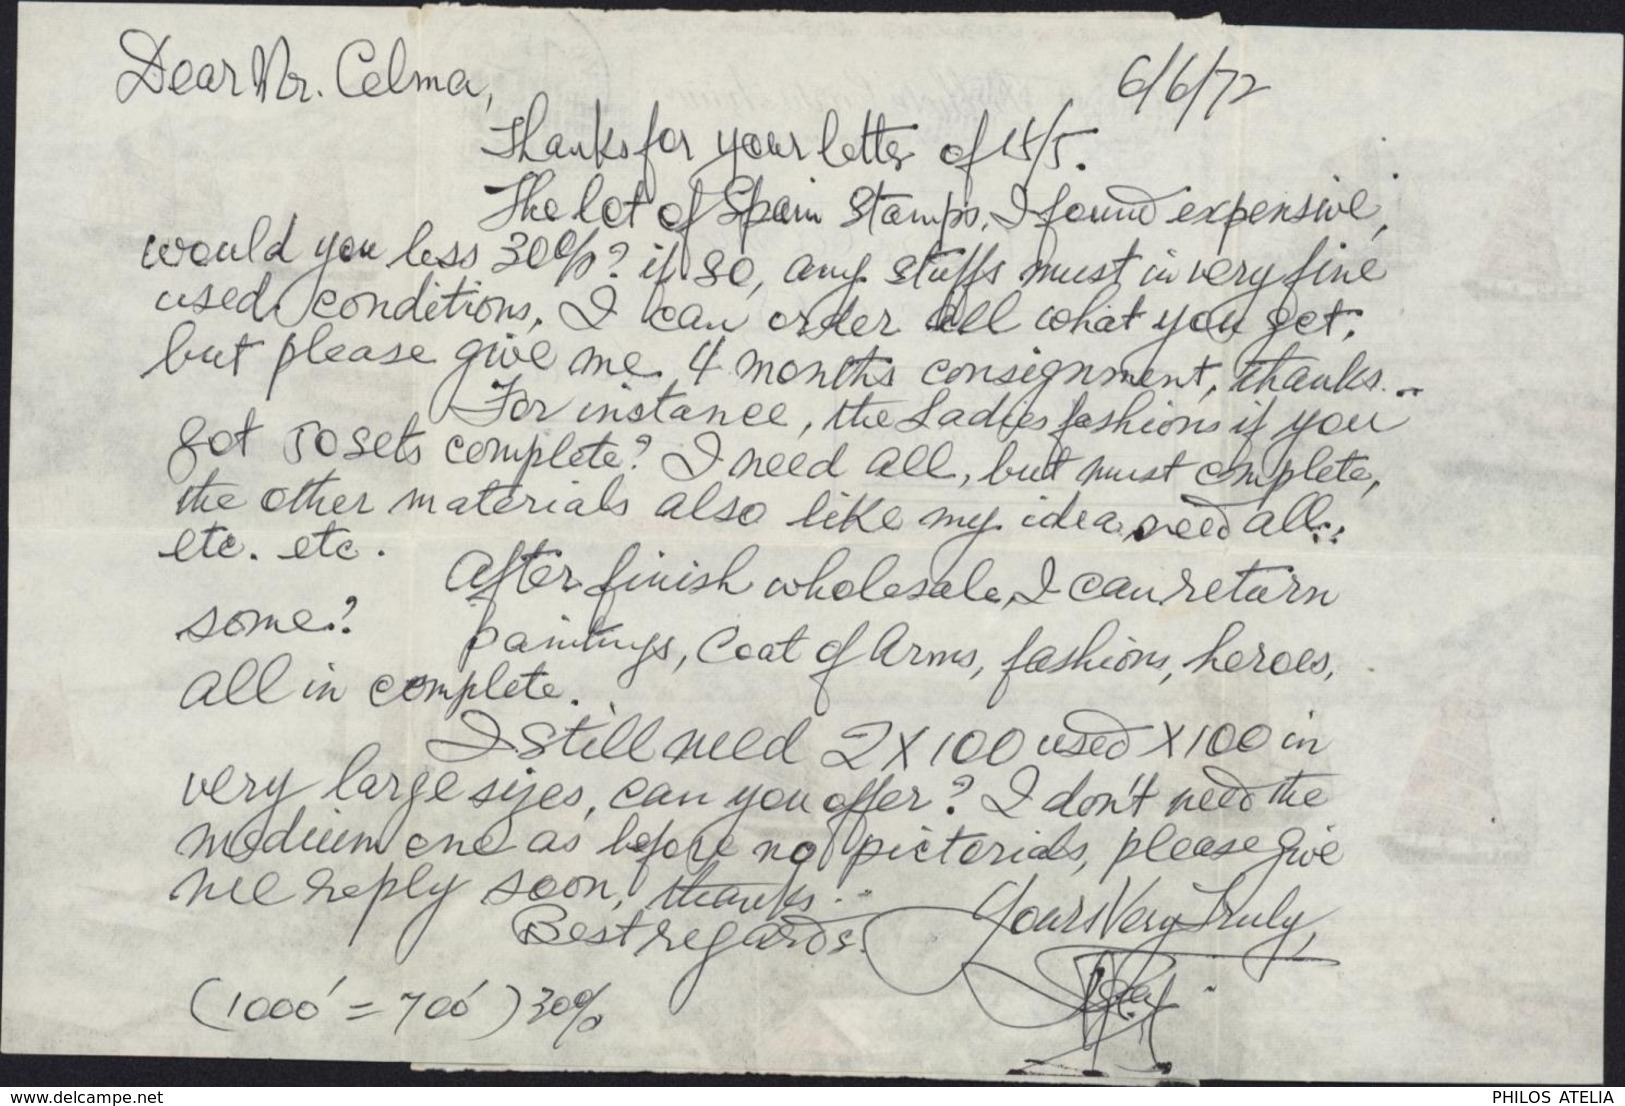 Dear Mr. Celma,
6/6/72
Thanks for your letter of 15/5.
The lot of Spain Stamps, I found expensive,
would you less 30%? if so, any stuffs must in very fine
used conditions, I can order all what you get,
but please give me 4 months consignment, thanks...
For instance, the Ladies fashions if you
got 50 sets complete? I need all, but must complete,
the other materials also like my idea, need all..
etc. etc.
After finish wholesale, I can return
some?
paintings, Coat of Arms, fashions, heroes,
all in complete.
I still need 2 X 100 used X 100 in
very large sizes, can you offer? I don't need the
medium one as before no pictorials, please give
me reply soon, thanks.
Best regards.
Yours Very Truly,
(1000' = 700') 30%
delcampe.net
PHILOS ATELIA